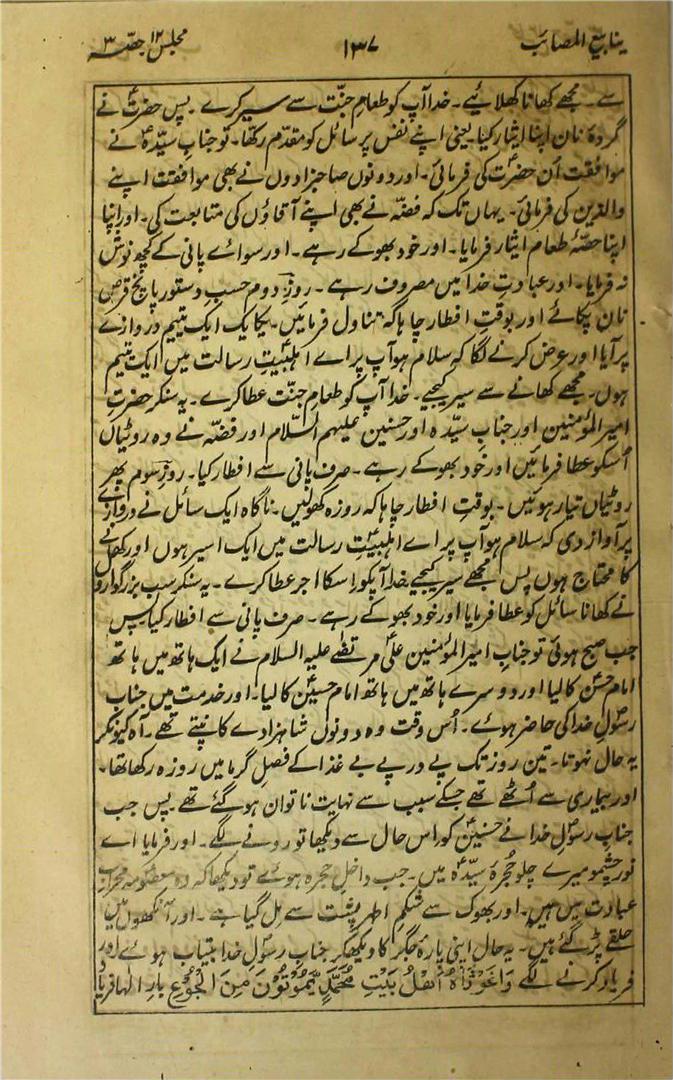 ینابیع المصائب ۱۳۷ مجلس ۱۲ حصہ ۳
سے۔ مجھے کھانا کھلائیے۔ خدا آپ کو طعامِ جنّت سے سیر کرے۔ پس حضرتؑ نے
گردۂ نان اپنا ایثار کیا یعنی اپنے نفس پر سائل کو مقدّم رکھا۔ تو جناب سیّدہؑ نے
موافقت اُن حضرتؑ کی فرمائی۔ اور دونوں صاحبزادوں نے بھی موافقت اپنے
والدین کی فرمائی۔ یہاں تک کہ فضّہ نے بھی اپنے آقاؤں کی متابعت کی۔ اور اپنا
اپنا حصّۂ طعام ایثار فرمایا۔ اور خود بھوکے رہے۔ اور سوائے پانی کے کچھ نوش
نہ فرمایا۔ اور عبادتِ خدا میں مصروف رہے۔ روزِ دوم حسبِ دستور پانچ قرص
نان پکائے اور بوقتِ افطار چاہا کہ تناول فرمائیں۔ یکایک ایک یتیم دروازے
پر آیا اور عرض کرنے لگا کہ سلام ہو آپ پر اے اہلبیتِؑ رسالت میں ایک یتیم
ہوں۔ مجھے کھانے سے سیر کیجیے۔ خدا آپ کو طعامِ جنّت عطا کرے۔ یہ سنکر حضرتِ
امیر المؤمنین اور جناب سیّدہ اور حسنین علیہم السّلام اور فضّہ نے وہ روٹیاں
اُسکو عطا فرمائیں اور خود بھوکے رہے۔ صرف پانی سے افطار کیا۔ روزِ سوم پھر
روٹیاں تیار ہوئیں۔ بوقتِ افطار چاہا کہ روزہ کھولیں۔ ناگاہ ایک سائل نے دروازے
پر آواز دی کہ سلام ہو آپ پر اے اہلبیتِؑ رسالت میں ایک اسیر ہوں اور کھانے
کا محتاج ہوں پس مجھے سیر کیجیے خدا آپکو اِسکا اجر عطا کرے۔ یہ سنکر سب بزرگواروں
نے کھانا سائل کو عطا فرمایا اور خود بھوکے رہے۔ صرف پانی سے افطار کیا پس
جب صبح ہوئی تو جناب امیر المؤمنین علی مرتضےٰ علیہ السلام نے ایک ہاتھ میں ہاتھ
امام حسنؑ کا لیا اور دوسرے ہاتھ میں ہاتھ امام حسینؑ کا لیا۔ اور خدمت میں جناب
رسولِؐ خدا کی حاضر ہوئے۔ اُس وقت وہ دونوں شاہزادے کانپتے تھے۔ آہ کیونکر
یہ حال نہوتا۔ تین روز تک پے در پے بے غذا کے فصلِ گرما میں روزہ رکھا تھا۔
اور بیماری سے اُٹھے تھے جسکے سبب سے نہایت ناتوان ہو گئے تھے پس جب
جناب رسولِؐ خدا نے حسنینؑ کو اس حال سے دیکھا تو رونے لگے۔ اور فرمایا اے
نور چشمو میرے چلو حُجرۂ سیّدہؑ میں۔ جب داخلِ حجرہ ہوئے تو دیکھا کہ وہ معصومہ محرابِ
عبادت میں ہیں۔ اور بھوک سے شکمِ اطہر پشت سے مل گیا ہے۔ اور آنکھوں میں
حلقے پڑ گئے ہیں۔ یہ حال اپنی پارۂ جگر کا دیکھکر جناب رسولِؐ خدا بیتاب ہوئے اور
فریاد کرنے لگے وَاغَوْثَاہُ اَہْلُ بَیْتِ مُحَمَّدٍ یَّمُوْتُوْنَ مِنَ الْجُوْعِ بارِ الٰہا فریاد